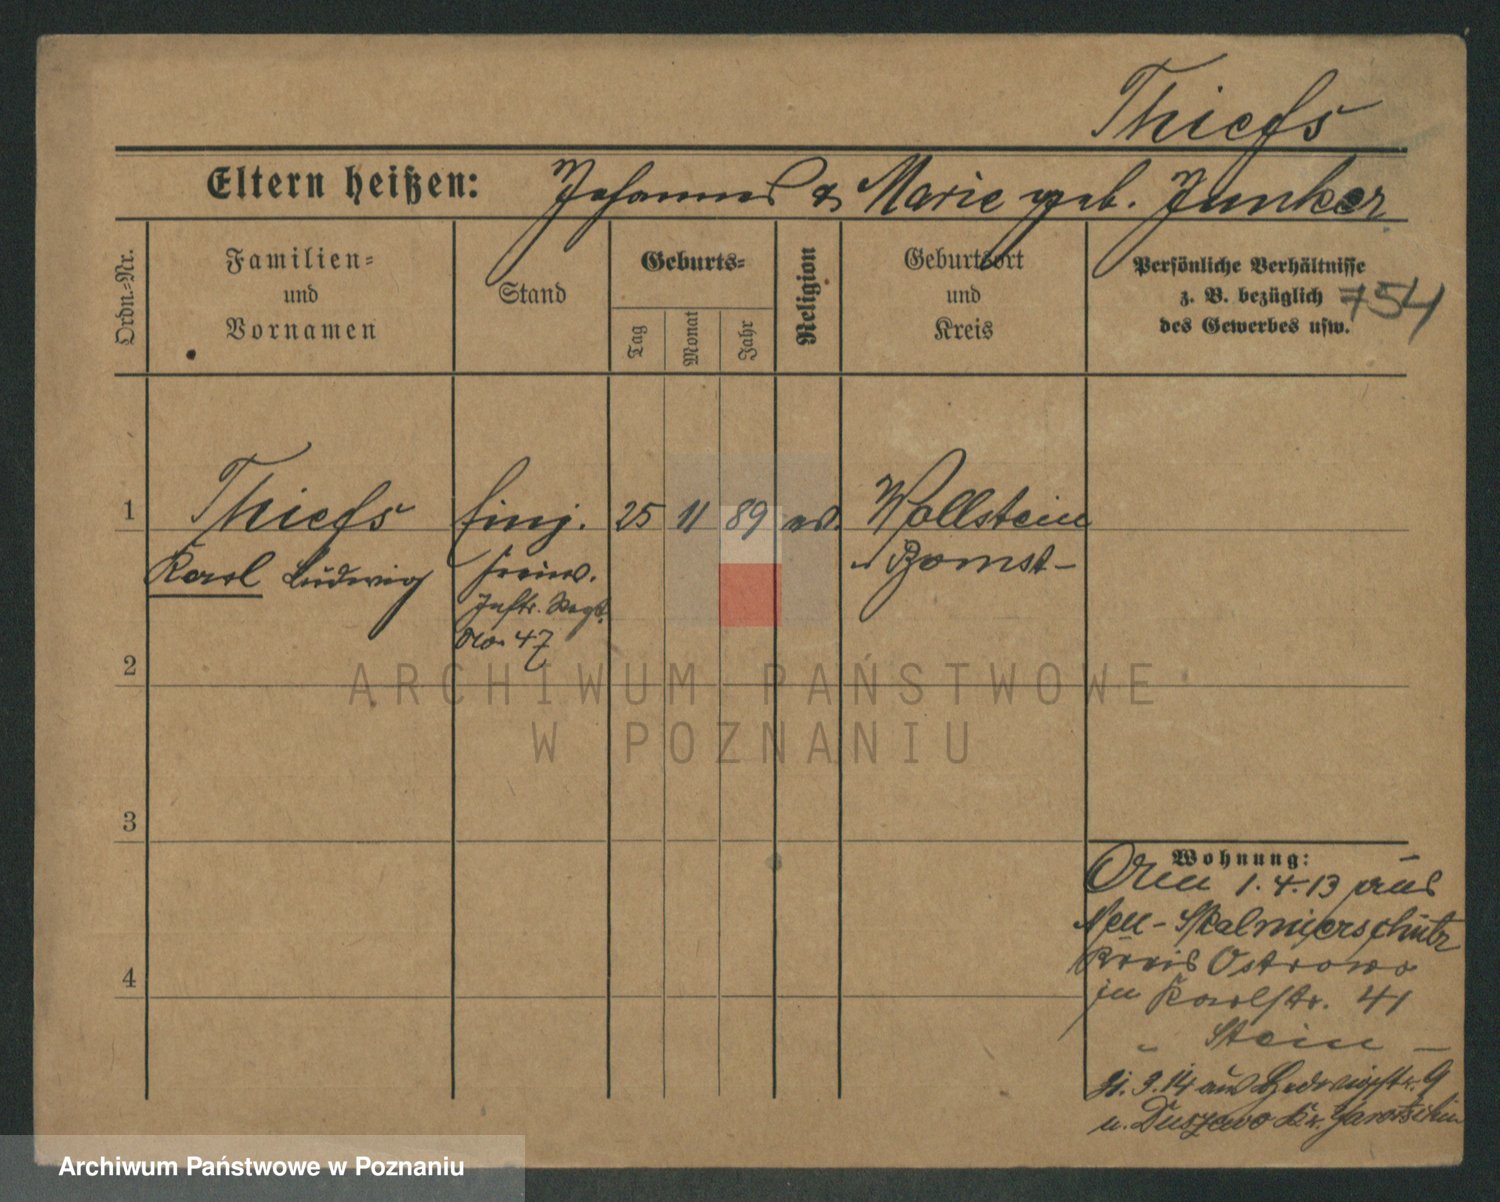 Thiefs
Eltern heißen: Johannes & Marie geb. Junker
Ordn.-Nr.
Familien-
und
Vornamen
Stand
Geburts-
Tag
Monat
Jahr
Religion
Geburtsort
und
Kreis
Persönliche Verhältnisse
z. B. bezüglich
des Gewerbes usw.
754
1 Thiefs Einj. 25 11 89 ev. Wollstein
Karl Ludwig freiw. Bomst
Inftr. Regt.
No. 47
2
3
4
ARCHIWUM PAŃSTWOWE
W POZNANIU
Wohnung:
1.4.13 aus
Neu-Skalmierschütz
Kreis Ostrowo
in Karlstr. 41
" Stein -
3.14 aus Hedwigstr. 9
n. Kr. Jarotschin
Archiwum Państwowe w Poznaniu